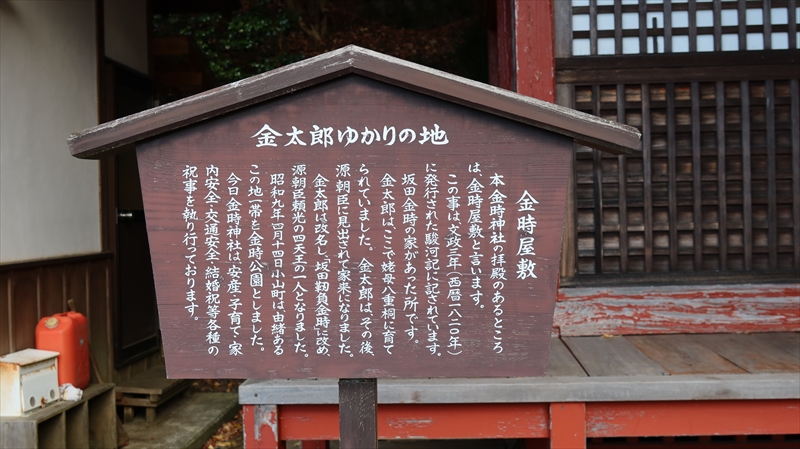 金太郎ゆかりの地
金時屋敷
本金時神社の拝殿のあるところ
は、金時屋敷と言います。
この事は文政三年(西暦一八二〇年)
に発行された駿河記に記されています。
坂田金時の家があった所です。
金太郎は、ここで姥母八重桐に育て
られていました。金太郎は、その後
源頼朝臣に見出されて家来になりました。
金太郎は改名し、坂田靱負金時に改め、
源朝臣頼光の四天王の一人となりました。
昭和九年四月十四日小山町は由緒ある
この地一帯を金時公園としました。
今日金時神社は、安産・子育て・家
内安全・交通安全・結婚祝等各種の
祝事を執り行っております。